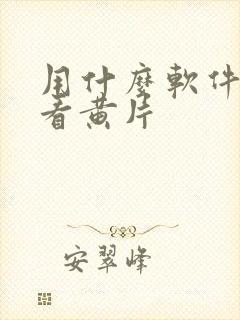 用什麼軟件
看黃片
安翠峰